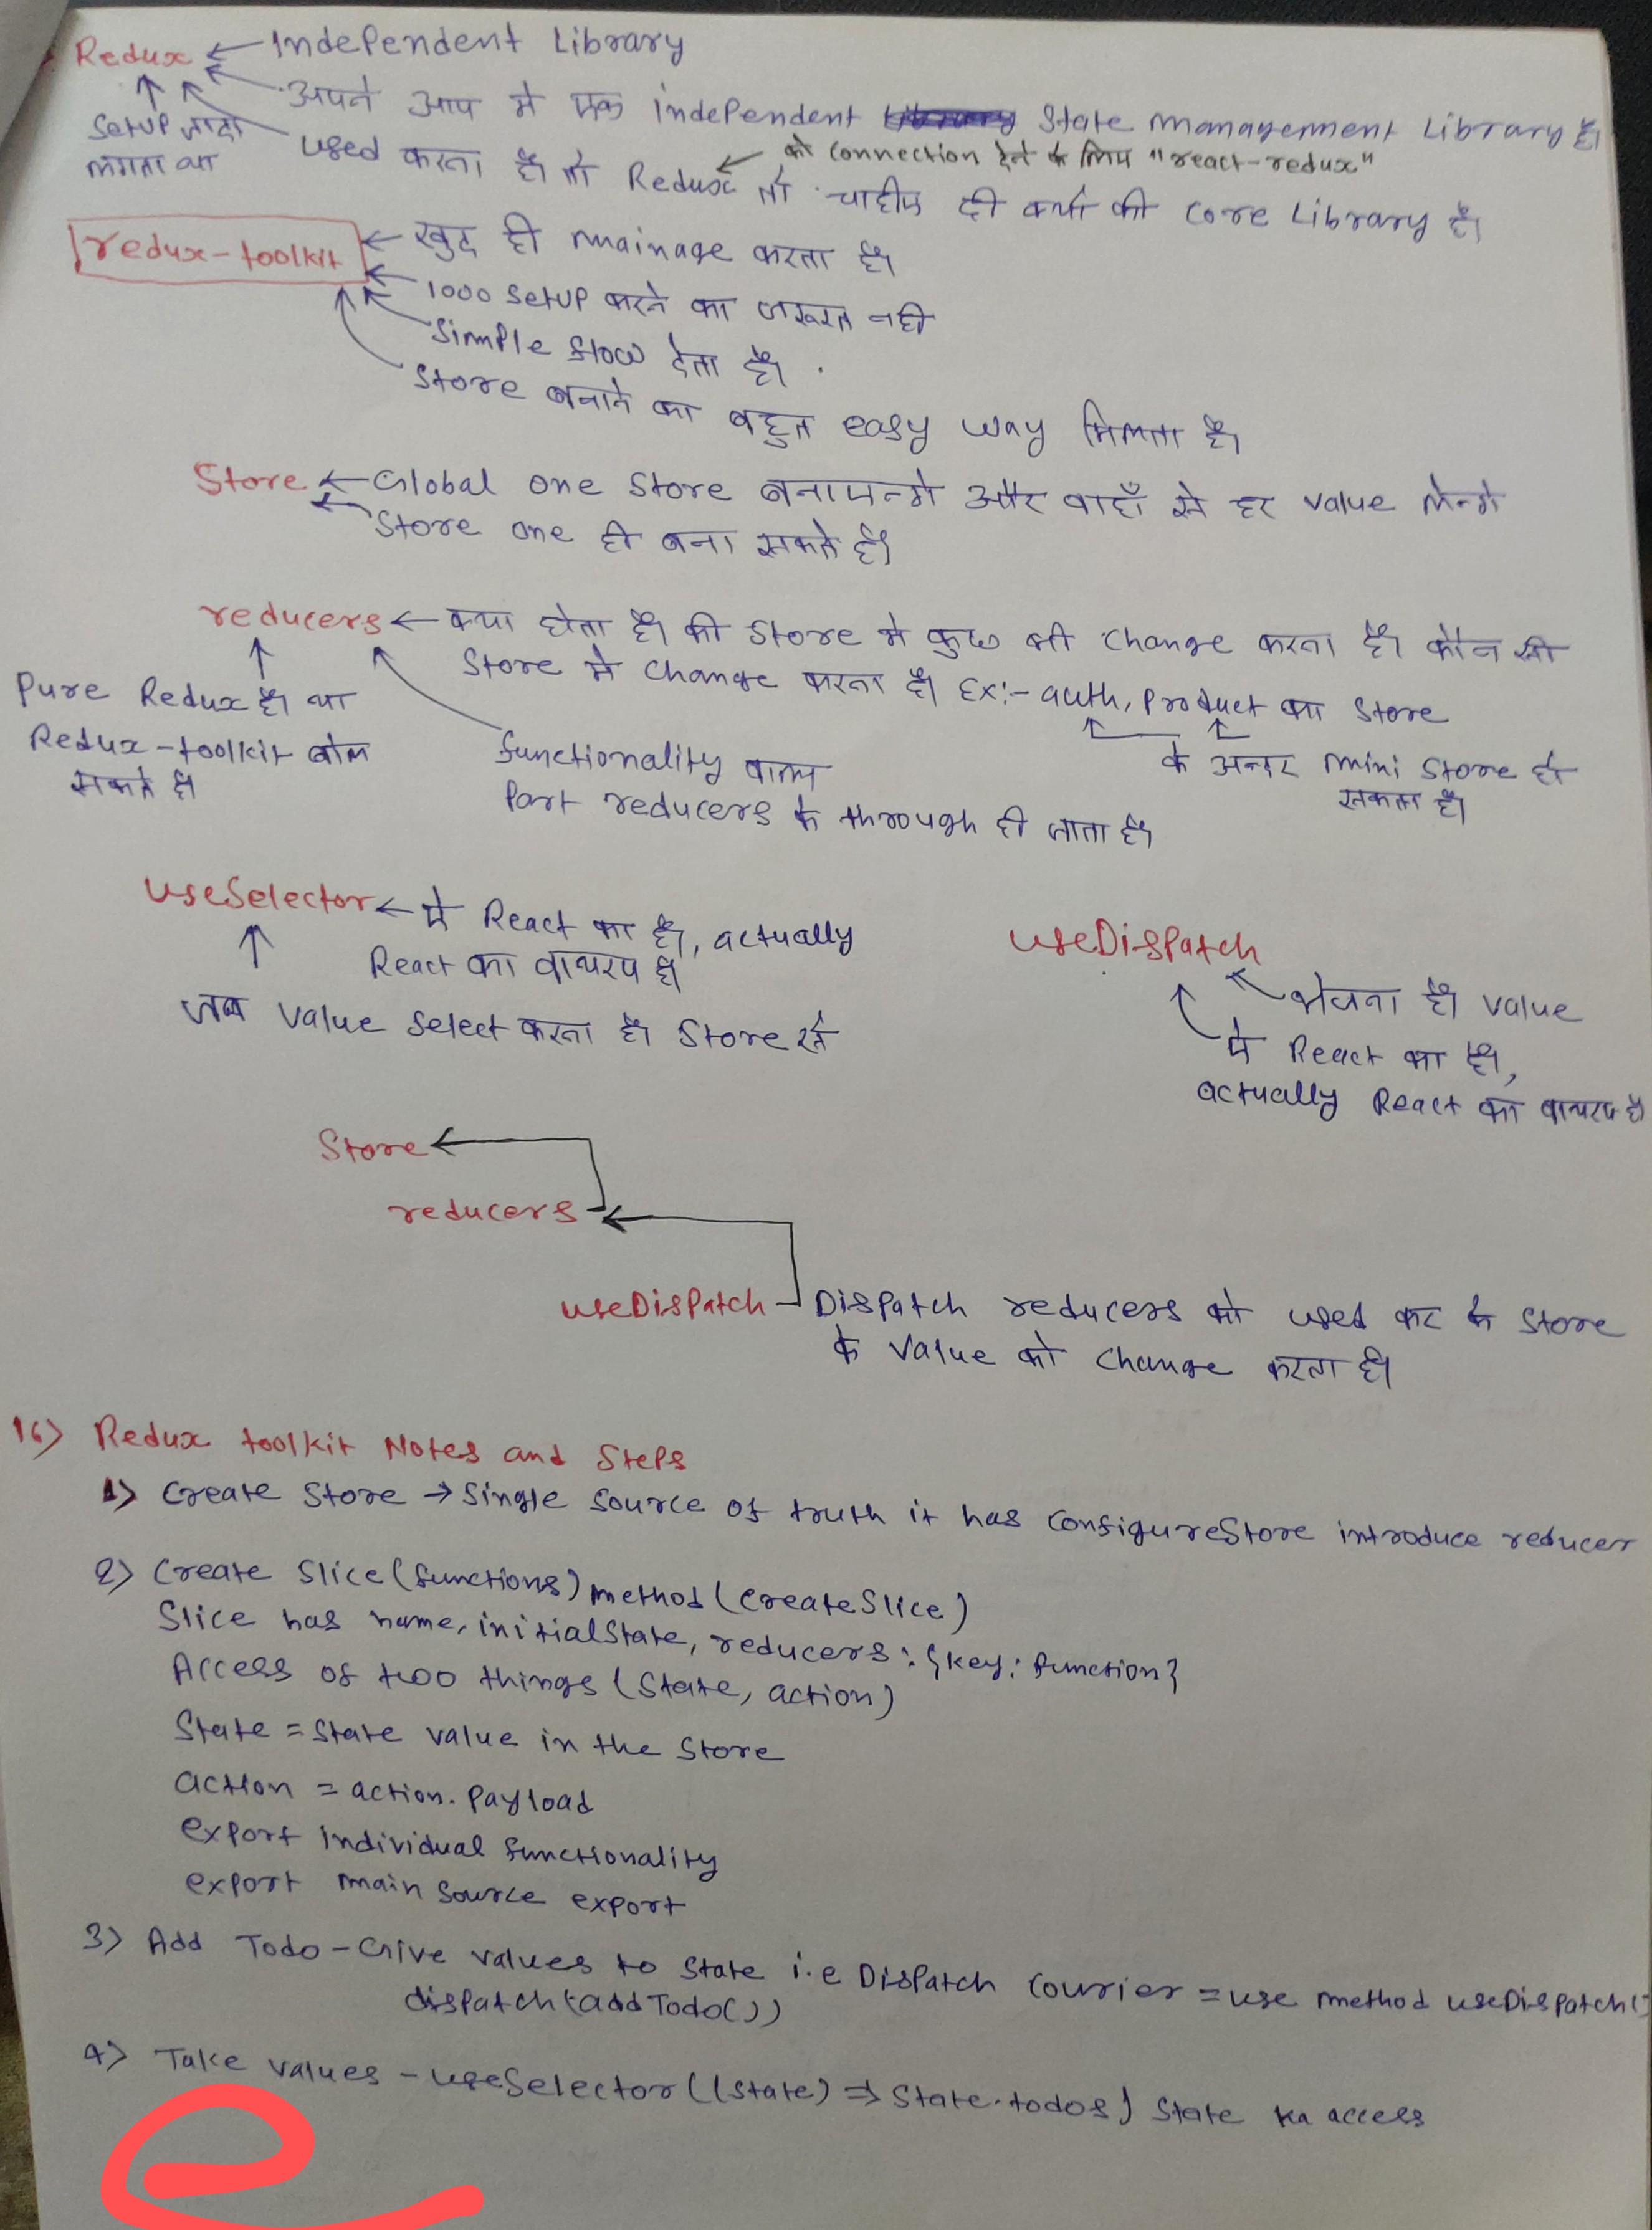 Redux ← Independent Library
अपने आप मे एक independent State management Library है।
setup जादा लगता था
को connection देने के लिए "react-redux"
used करता है। तो Redux तो चाहीए ही क्यों की core Library है।
redux-toolkit ← खुद ही mainage करता है।
1000 setup करने का जरूरत नही
Simple flow देता है।
Store बनाने का बहुत easy way मिलता है।
Store ← Global one Store बनाएन्गे और वाहाँ से हर value लेन्गे
Store one ही बना सकते है।
reducers ← क्या होता है। की Store मे कुछ भी change करना है। कौन सी
Store मे change करना है। Ex:- auth, Product का Store
के अन्दर mini store हो सकता है।
Pure Redux है। या
Redux-toolkit बोल
सकते है।
functionality वाला
Part reducers के through ही जाता है।
useSelector ← ये React का है, actually
React का वायरप है।
जब value select करना है। Store से
useDispatch
भेजना है। value
ये React का है,
actually React का वायरप है
Store ←
reducers ←
useDispatch Dispatch reducers को used कर के Store
के value को change करता है।
16) Redux toolkit Notes and Steps
1) Create Store → Single source of truth it has configureStore introduce reducer
2) Create Slice (functions) method (createSlice)
Slice has name, initialState, reducers: {key: function}
Access of two things (State, action)
State = State value in the Store
action = action.payload
export individual functionality
export main source export
3) Add Todo - Give values to State i.e Dispatch Courier = use method useDispatch()
dispatch(addTodo())
4) Take values - useSelector((state) => State.todos) State ka access